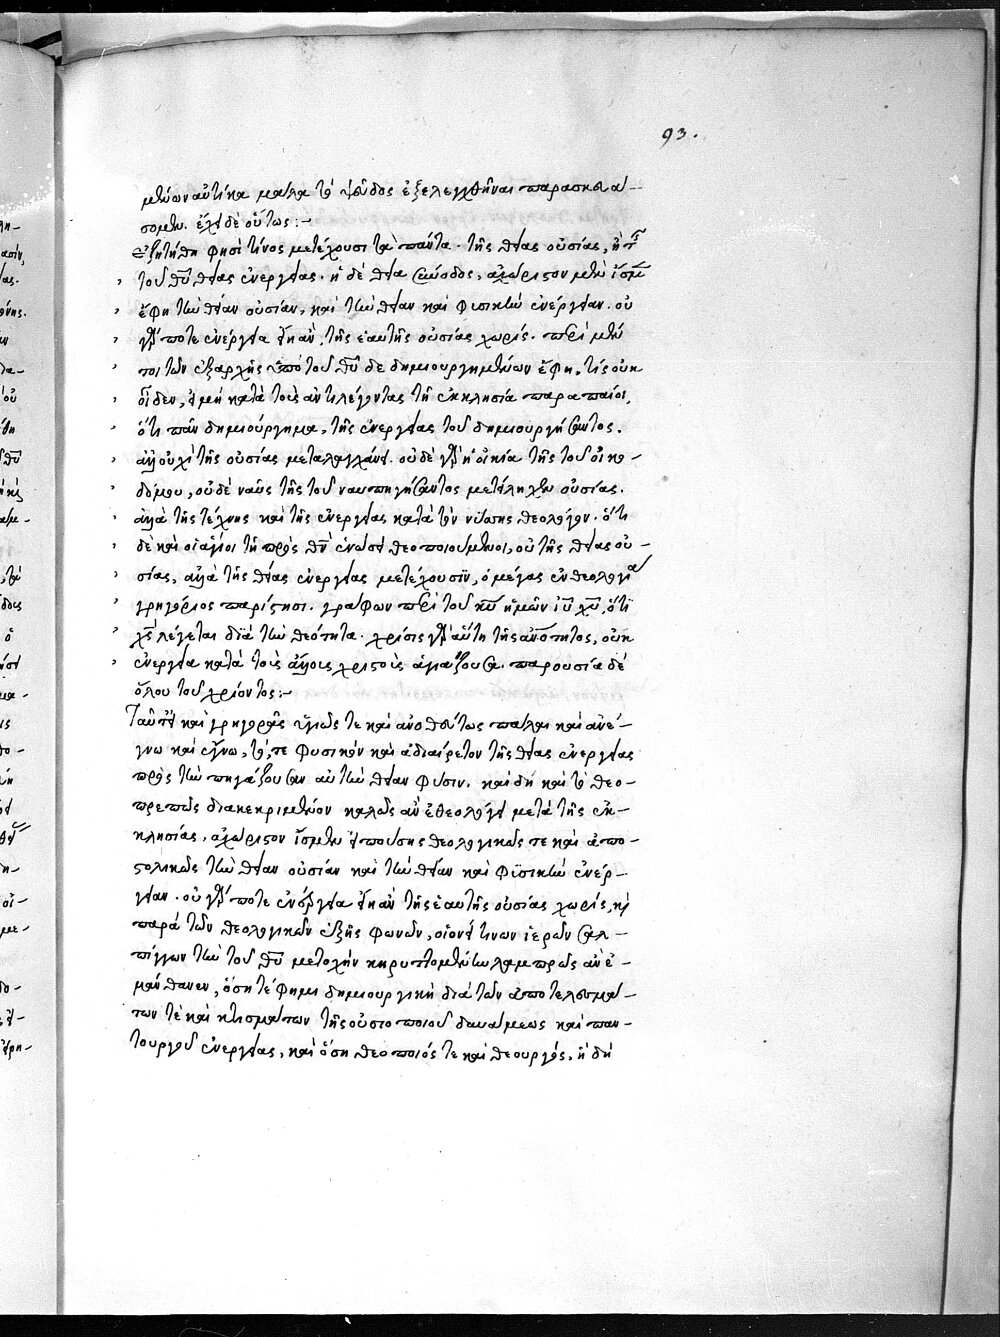 93.
μένων αὐτίκα μάλα τὸ ψεῦδος ἐξελεγχθῆναι παρασκευά-
σομεν. ἔχει δὲ οὕτως :-
Ἐζητήθη φησὶ τίνος μετέχουσι τὰ πάντα. τῆς θείας οὐσίας, ἢ
τοῦ θῦ θείας ἐνεργείας. ἡ δὲ θεία σύνοδος, ἀχώριστον μὲν ἴσμεν
ἔφη τὴν θείαν οὐσίαν, καὶ τὴν θείαν καὶ φυσικὴν ἐνέργειαν. οὐ
γάρ ποτε ἐνέργεια εἴη ἂν, τῆς ἑαυτῆς οὐσίας χωρίς. περὶ μέν
τοι τῶν ἐξαρχῆς ὑπὸ τοῦ θῦ δεδημιουργημένων ἔφη, τίς οὐκ
οἶδεν, εἰ μὴ κατὰ τοὺς ἀντιλέγοντας τῇ ἐκκλησία παραπαίοι,
ὅτι πᾶν δημιούργημα, τῆς ἐνεργείας τοῦ δημιουργήσαντος.
ἀλλ' οὐχὶ τῆς οὐσίας μεταλαγχάνει. οὐδὲ γὰρ ἡ οἰκία τῆς τοῦ οἰκο-
δόμου, οὐδὲ ναῦς τῆς τοῦ ναυπηγήσαντος μετείληχεν οὐσίας.
ἀλλὰ τῆς τέχνης καὶ τῆς ἐνεργείας κατὰ τὸν νύσσης θεολόγον. ὅτι
δὲ καὶ οἱ ἅγιοι τῇ πρὸς θν ἑνώσει θεοποιούμενοι, οὐ τῆς θείας οὐ-
σίας, ἀλλὰ τῆς θείας ἐνεργείας μετέχουσϊν, ὁ μέγας ἐν θεολογία
γρηγόριος παρίστησι. γράφων περὶ τοῦ κῦ ἡμῶν ιῦ χῦ, ὅτϊ
χς λέγεται διὰ τὴν θεότητα. χρίσις γὰρ αὕτη τῆς ἀνθρωπότητος, οὐκ
ἐνεργεία κατὰ τοὺς ἄλλους χριστοὺς ἁγιάζουσα. παρουσία δὲ
ὅλου τοῦ χρίοντος :-
καὶ γρηγορᾶς ὑγιῶς τε καὶ ἀνοθεύτως πάλαι καὶ ἀνέ-
γνω καὶ ἔγνω, τό, τε φυσικὸν καὶ ἀδιαίρετον τῆς θείας ἐνεργείας
πρὸς τὴν πηγάζουσαν αὐτὴν θείαν φύσιν. καὶ δὴ καὶ τὸ θεο-
πρεπῶς διακεκριμένον καλῶς ἂν ἐθεολόγει μετὰ τῆς ἐκ-
κλησίας, ἀχώριστον ἴσμεν εἰπούσης θεολογικῶς τε καὶ ἀπο-
στολικῶς τὴν θείαν οὐσίαν καὶ τὴν θείαν καὶ φϋσικὴν ἐνέρ-
γειαν. οὐ γάρ ποτε ἐνέργεια εἴη ἂν τῆς ἑαυτῆς οὐσίας χωρίς. καὶ
παρὰ τῶν θεολογικῶν ἑξῆς φωνῶν, οἱονεί τινων ἱερῶν σαλ-
πίγγων τὴν τοῦ θῦ μετοχὴν κηρυττομένην λαμπρῶς ἂν ἐ-
μάνθανεν, ὅση τέ φημι δημιουργικὴ διὰ τῶν ἀποτελεσμά-
των τὲ καὶ κτισμάτων τῆς οὐσιοποιοῦ δυνάμεως καὶ παν-
τουργοῦ ἐνεργείας, καὶ ὅση θεοποιός τε καὶ θεουργός, ἣ δὴ